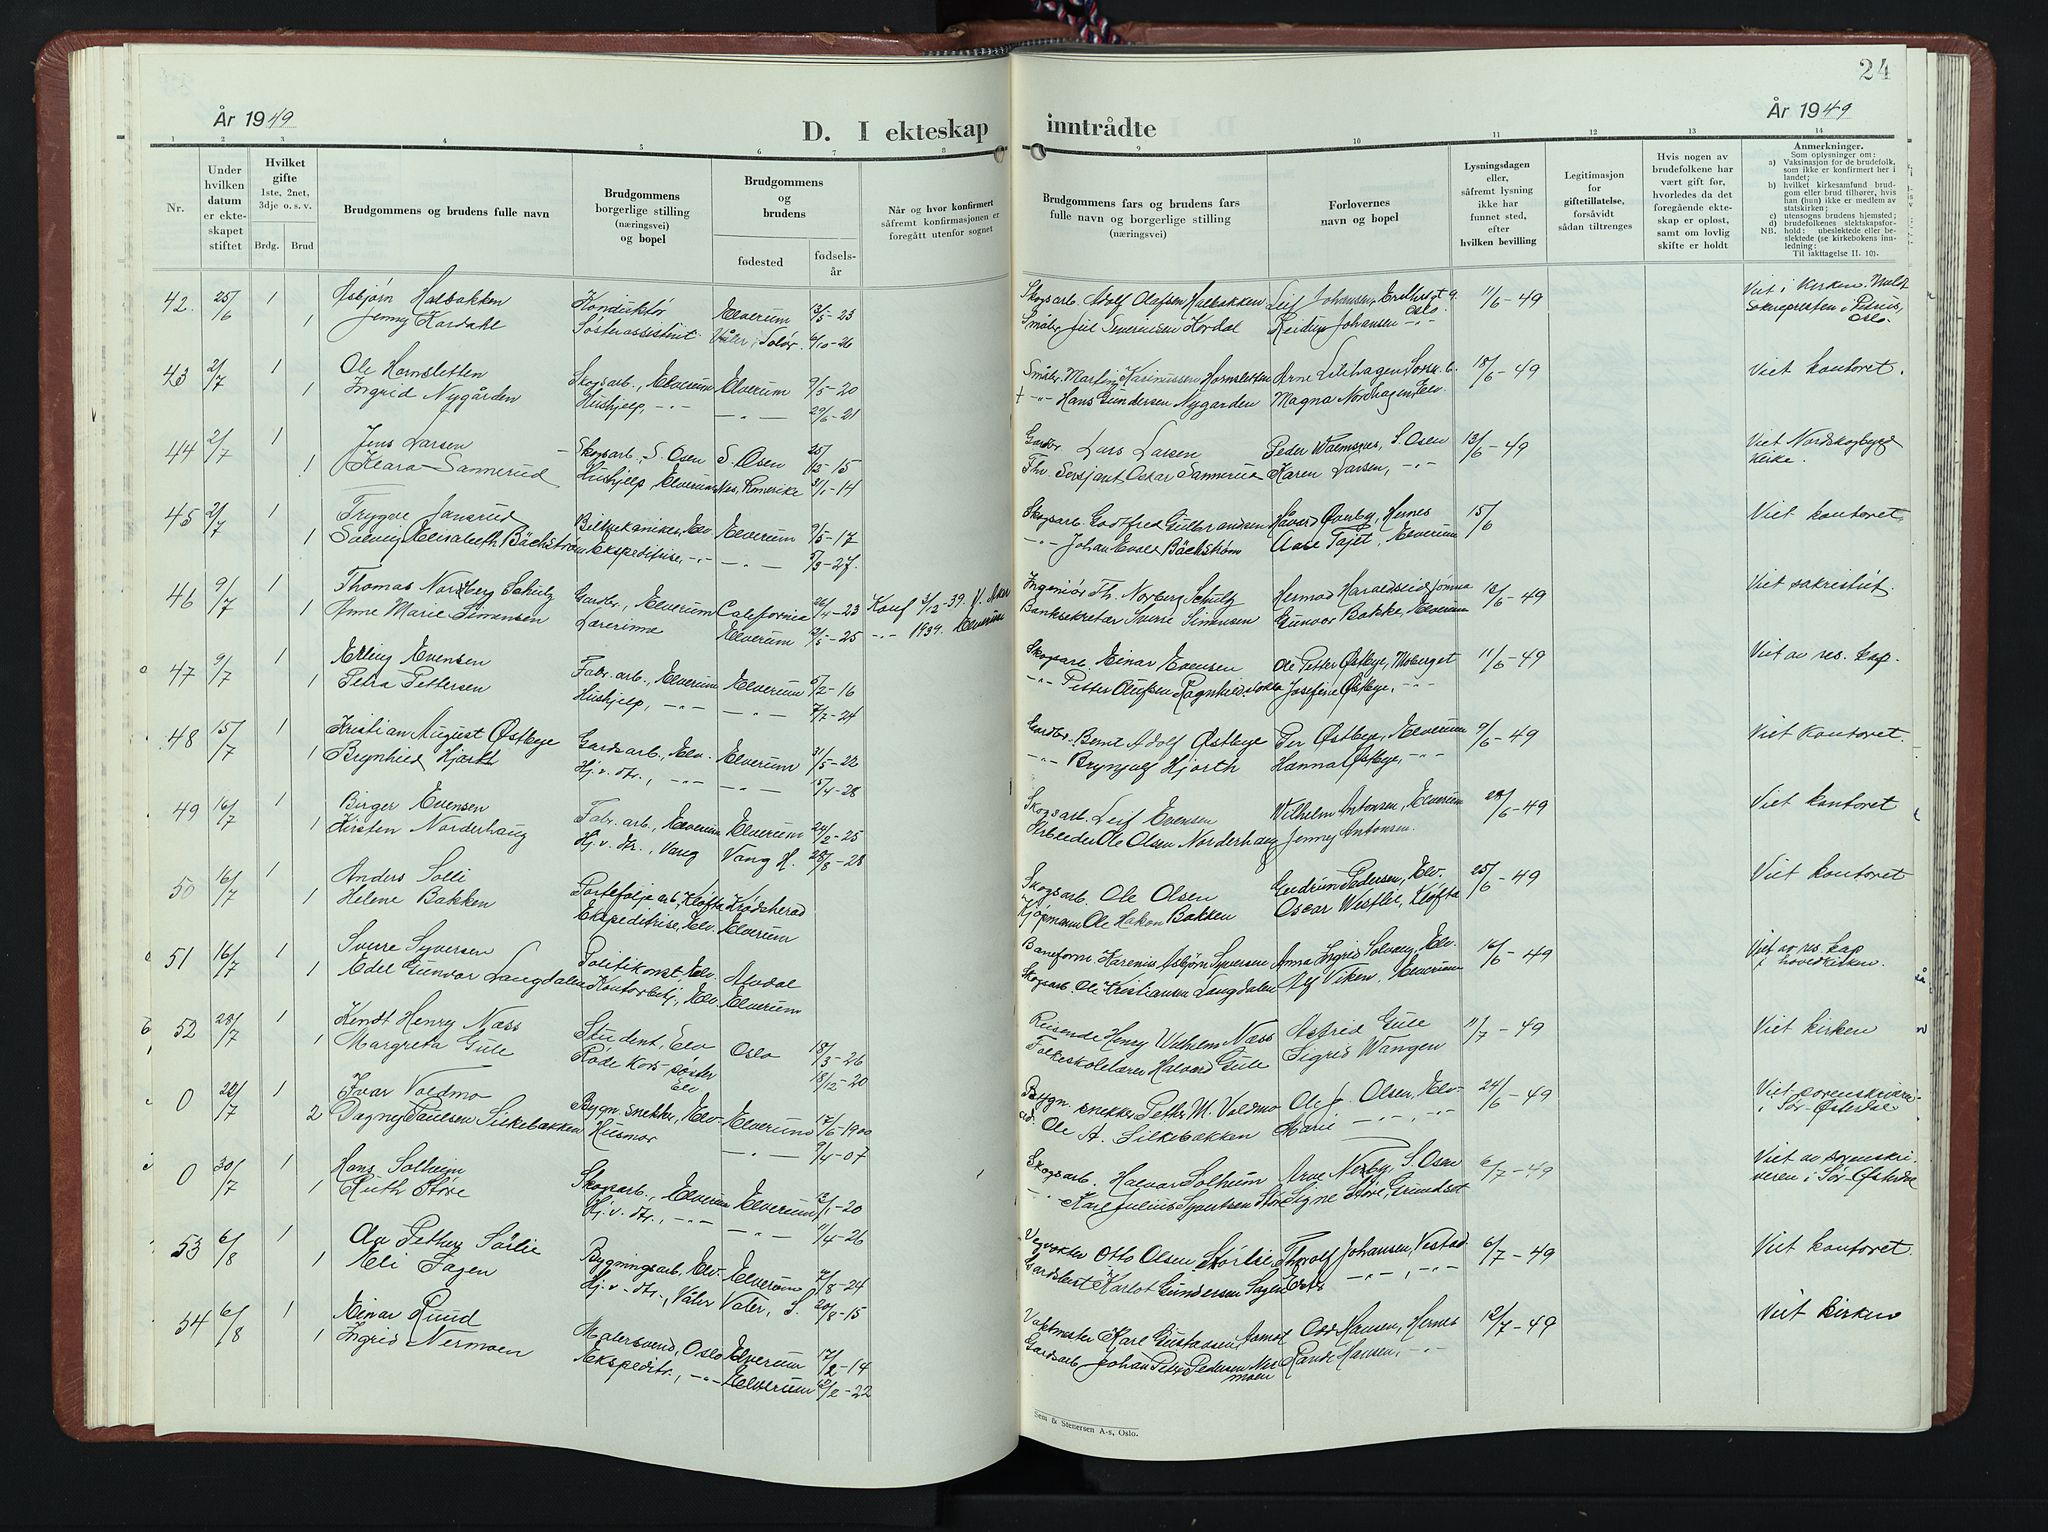 24
År 1949
D. I ekteskap inntrådte
År 1949
1 2 3 4 5 6 7 8 9 10 11 12 13 14
Nr.
Under hvilken datum er ekteskapet stiftet
Hvilket gifte
1ste, 2net, 3dje o. s. v.
Brdg. Brud
Brudgommens og brudens fulle navn
Brudgommens borgerlige stilling (næringsvei) og bopel
Brudgommens og brudens
fødested
fødselsår
Når og hvor konfirmert såfremt konfirmasjonen er foregått utenfor sognet
Brudgommens fars og brudens fars fulle navn og borgerlige stilling (næringsvei)
Forlovernes navn og bopel
Lysningsdagen eller, såfremt lysning ikke har funnet sted, efter hvilken bevilling
Legitimasjon for giftetillatelse, forsåvidt sådan tiltrenges
Hvis nogen av brudefolkene har vært gift før, hvorledes da det foregående ekteskap er opløst, samt om lovlig skifte er holdt
Anmerkninger.
Som oplysninger om:
a) Vaksinasjon for de brudefolk, som ikke er konfirmert her i landet;
b) hvilket kirkesamfund brudgom eller brud tilhører, hvis han (hun) ikke er medlem av statskirken;
c) utensogns brudens hjemsted;
d) brudefolkenes slektskapsforhold: ubeslektede eller beslektede (se kirkebokens innledning:
NB. Til iakttagelse II. 10).
42. 25/6 1 Asbjørn Halbakken Konduktør Elverum 13/5-23 Skogsarb. Adolf Olafsen Halbakken Leif Johansen, Oslo. 11/6-49 Viet i kirken
1 Jenny Kordahl Søsterassistent Våler, Solør. 6/10-26 Småbr. Severinsen Kordal Reidun Johansen -"- Oslo.
43 2/7 1 Ole Hornsletten Skogsarb., Elverum Elverum 9/5-20 Småbr. Martin Rasmussen Hornsletten Arne Lilehagen 18/6-49 Viet kontoret.
1 Ingrid Nygården Hushjelp -"- -"- 29/6-21 -"- Hans Gundersen Nygården Magna Nordhagen, Elv.
44 2/7 1 Jens Larsen Skogsarb., S. Osen S. Osen 25/12-15 Gardbr. Lars Larsen Peder Valmsnes, S. Osen 13/6-49 Viet Nordskogbygd kirke.
1 Klara Sannerud Hushjelp, Elverum Nes, Romerike 31/1-14 Fhv. Sersjant Oskar Sannerud Karen Larsen, -"-
45 2/7 1 Trygve Jansrud Bilmekaniker, Elv. Elverum 9/5-17 Skogsarb. Godtfred Gulbrandsen Håvard Øvreby, Hernes 15/6 Viet kontoret.
1 Solveig Elisabeth Bäckstrøm Ekspeditrise, -"- -"- 5/3-27. -"- Johan Evald Bäckstrøm Aase Tajet, Elverum
46 9/7 1 Thomas Nordberg Schulz Gardbr., Elverum California 26/4-23 Konf. 3/12-39. V. Aker Ingeniør Th. Norberg Schultz Hermod Haraldseid Jønna 12/6-49 Viet sakristiet.
1 Anne Marie Simensen Lærerinne Elverum 12/5-25 -"- 1939. Elverum Banksekretær Sverre Simensen Gunvor Bakke, Elverum
47 9/7 1 Erling Evensen Fabr. arb., Elverum Elverum 5/2-16 Skogsarb. Einar Evensen Ole Petter Østbye, Moberget 11/6-49 Viet av res. kap.
1 Petra Pettersen Hushjelp, -"- -"- 7/7-24 -"- Petter Olufsen Josefine Østbye, -"-
48 15/7 1 Kristian August Østbye Gardsarb., Elv. Elverum 31/5-22 Gardbr. Bernt Adolf Østbye Per Østbye, Elverum 9/6-49 Viet kontoret.
1 Brynhild Hjorth Hj. v. dtr., -"- -"- 15/4-28 -"- Brynjulf Hjorth Hanna Østbye, -"-
49 16/7 1 Birger Evensen Fabr. arb., Elverum Elverum 24/2-25 Skogsarb. Leif Evensen Wilhelm Antonsen, Elverum 24/6-49 Viet kontoret
1 Kirsten Norderhaug Hj. v. dtr., Vang Vang H. 28/8-28 Arbleder Ole Olsen Norderhaug Jenny Antonsen.
50 16/7 1 Anders Solli Portefølje arb., Kløfta Krødsherad Skogsarb. Ole Olsen Gudrun Pedersen, Elv. 25/6-49 Viet kontoret
1 Helene Bakken Ekspeditrise, Elv. Elverum Kjøpmann Ole Håkon Bakken Oscar Westlie, Kløfta
51 16/7 1 Sverre Syversen Politikonst. Elv. Alvdal Baneform. Karenius Asbjørn Syversen Anna Ingrid Solvang, Elv. 16/6-49 Viet av res. kap i hovedkirken.
1 Edel Gunvor Langdalen Kontorbetj., Elv. Elverum Skogsarb. Ole Kristiansen Langdalen Alf Viken, Elverum
52 23/7 1 Kendt Henry Næss Student, Elv Oslo 18/3-26 Reisende Henry Wilhelm Næss Astrid Gule 11/7-49 Viet kirken
1 Margreta Gule Røde Kors-søster Elv. 18/12-20 Folkeskolelærer Halvard Gule Sigrid Wangen
0 22/7 1 Ivar Voldmo Bygn. snekker, Elv. Elverum 17/6-1900 Bygn. snekker Pether M. Voldmo Ole J. Olsen, Elv. 24/6-49 Viet sorenskriveren i Sør-Østerdal
2 Dagney Paulsen Silkebækken Husmor -"- 9/4-07 Ole A. Silkebækken Marie -"- -"-
0 30/7 1 Hans Solheim Skogsarb., Elverum Elverum 13/1-20 Skogsarb. Halvor Solheim Arne Næsby, S. Osen 6/7-49 Viet av sorenskriveren i Sør-Østerdal
1 Ruth Støre Hj. v. dtr., -"- -"- 11/4-26 -"- Karl Julius Syvertsen Støre Signe Støre, Grundset
53 6/8 1 Petter Sørlie Bygningsarb., Elv. Elverum 7/8-24 Vegvokter Otto Olsen Sørlie Thorolf Johansen, Vestad 6/7-49 Viet kontoret.
1 Eli Sagen Hj. v. dtr., Våler Våler, S. 20/8-15 Karlot Gundersen Sagen -"-, -"-
54 6/8 1 Einar Ruud Malersvend, Oslo Elverum 17/2-14 Vaktmester Karl Gustavsen, Aamot Odd Hansen, Hernes 12/7-49 Viet kirken
1 Ingrid Nermoen Ekspeditr., -"- Elverum 12/2-22 Gardsarb. Johan Petter Pedersen Nermoen Randi Hansen, -"-
Sem & Stenersen A-s, Oslo.